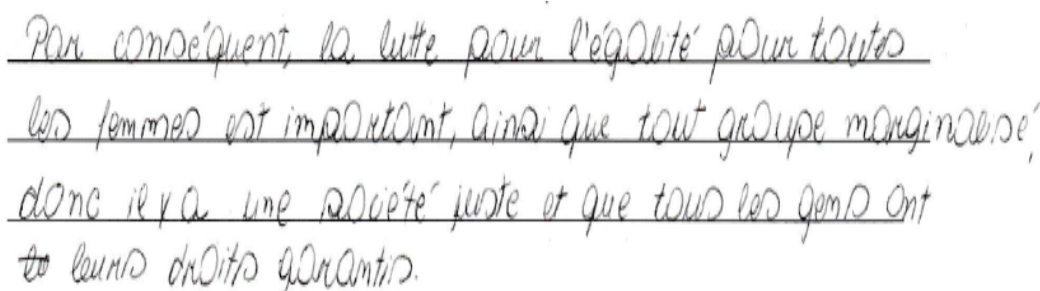 Par conséquent, la lutte pour l'égalité pour toutes
les femmes est important, ainsi que tout groupe marginalisé,
donc il y a une société juste et que tous les gens ont
leurs droits garantis.